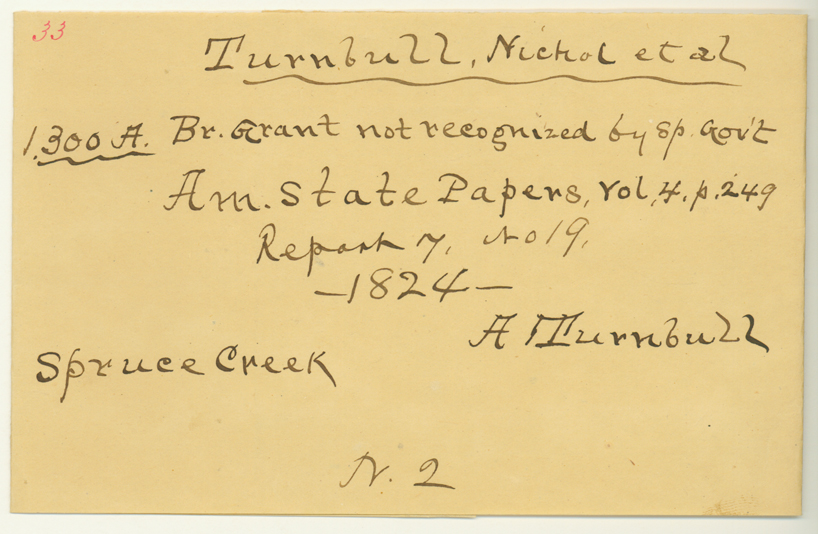 33
Turnbull, Nichol et al
1,300 A. Br. Grant not recognized by Sp. Gov't
Am. State Papers, Vol, 4. p. 249
Report 7, No 19,
—1824—
A Turnbull
Spruce Creek
N. 2